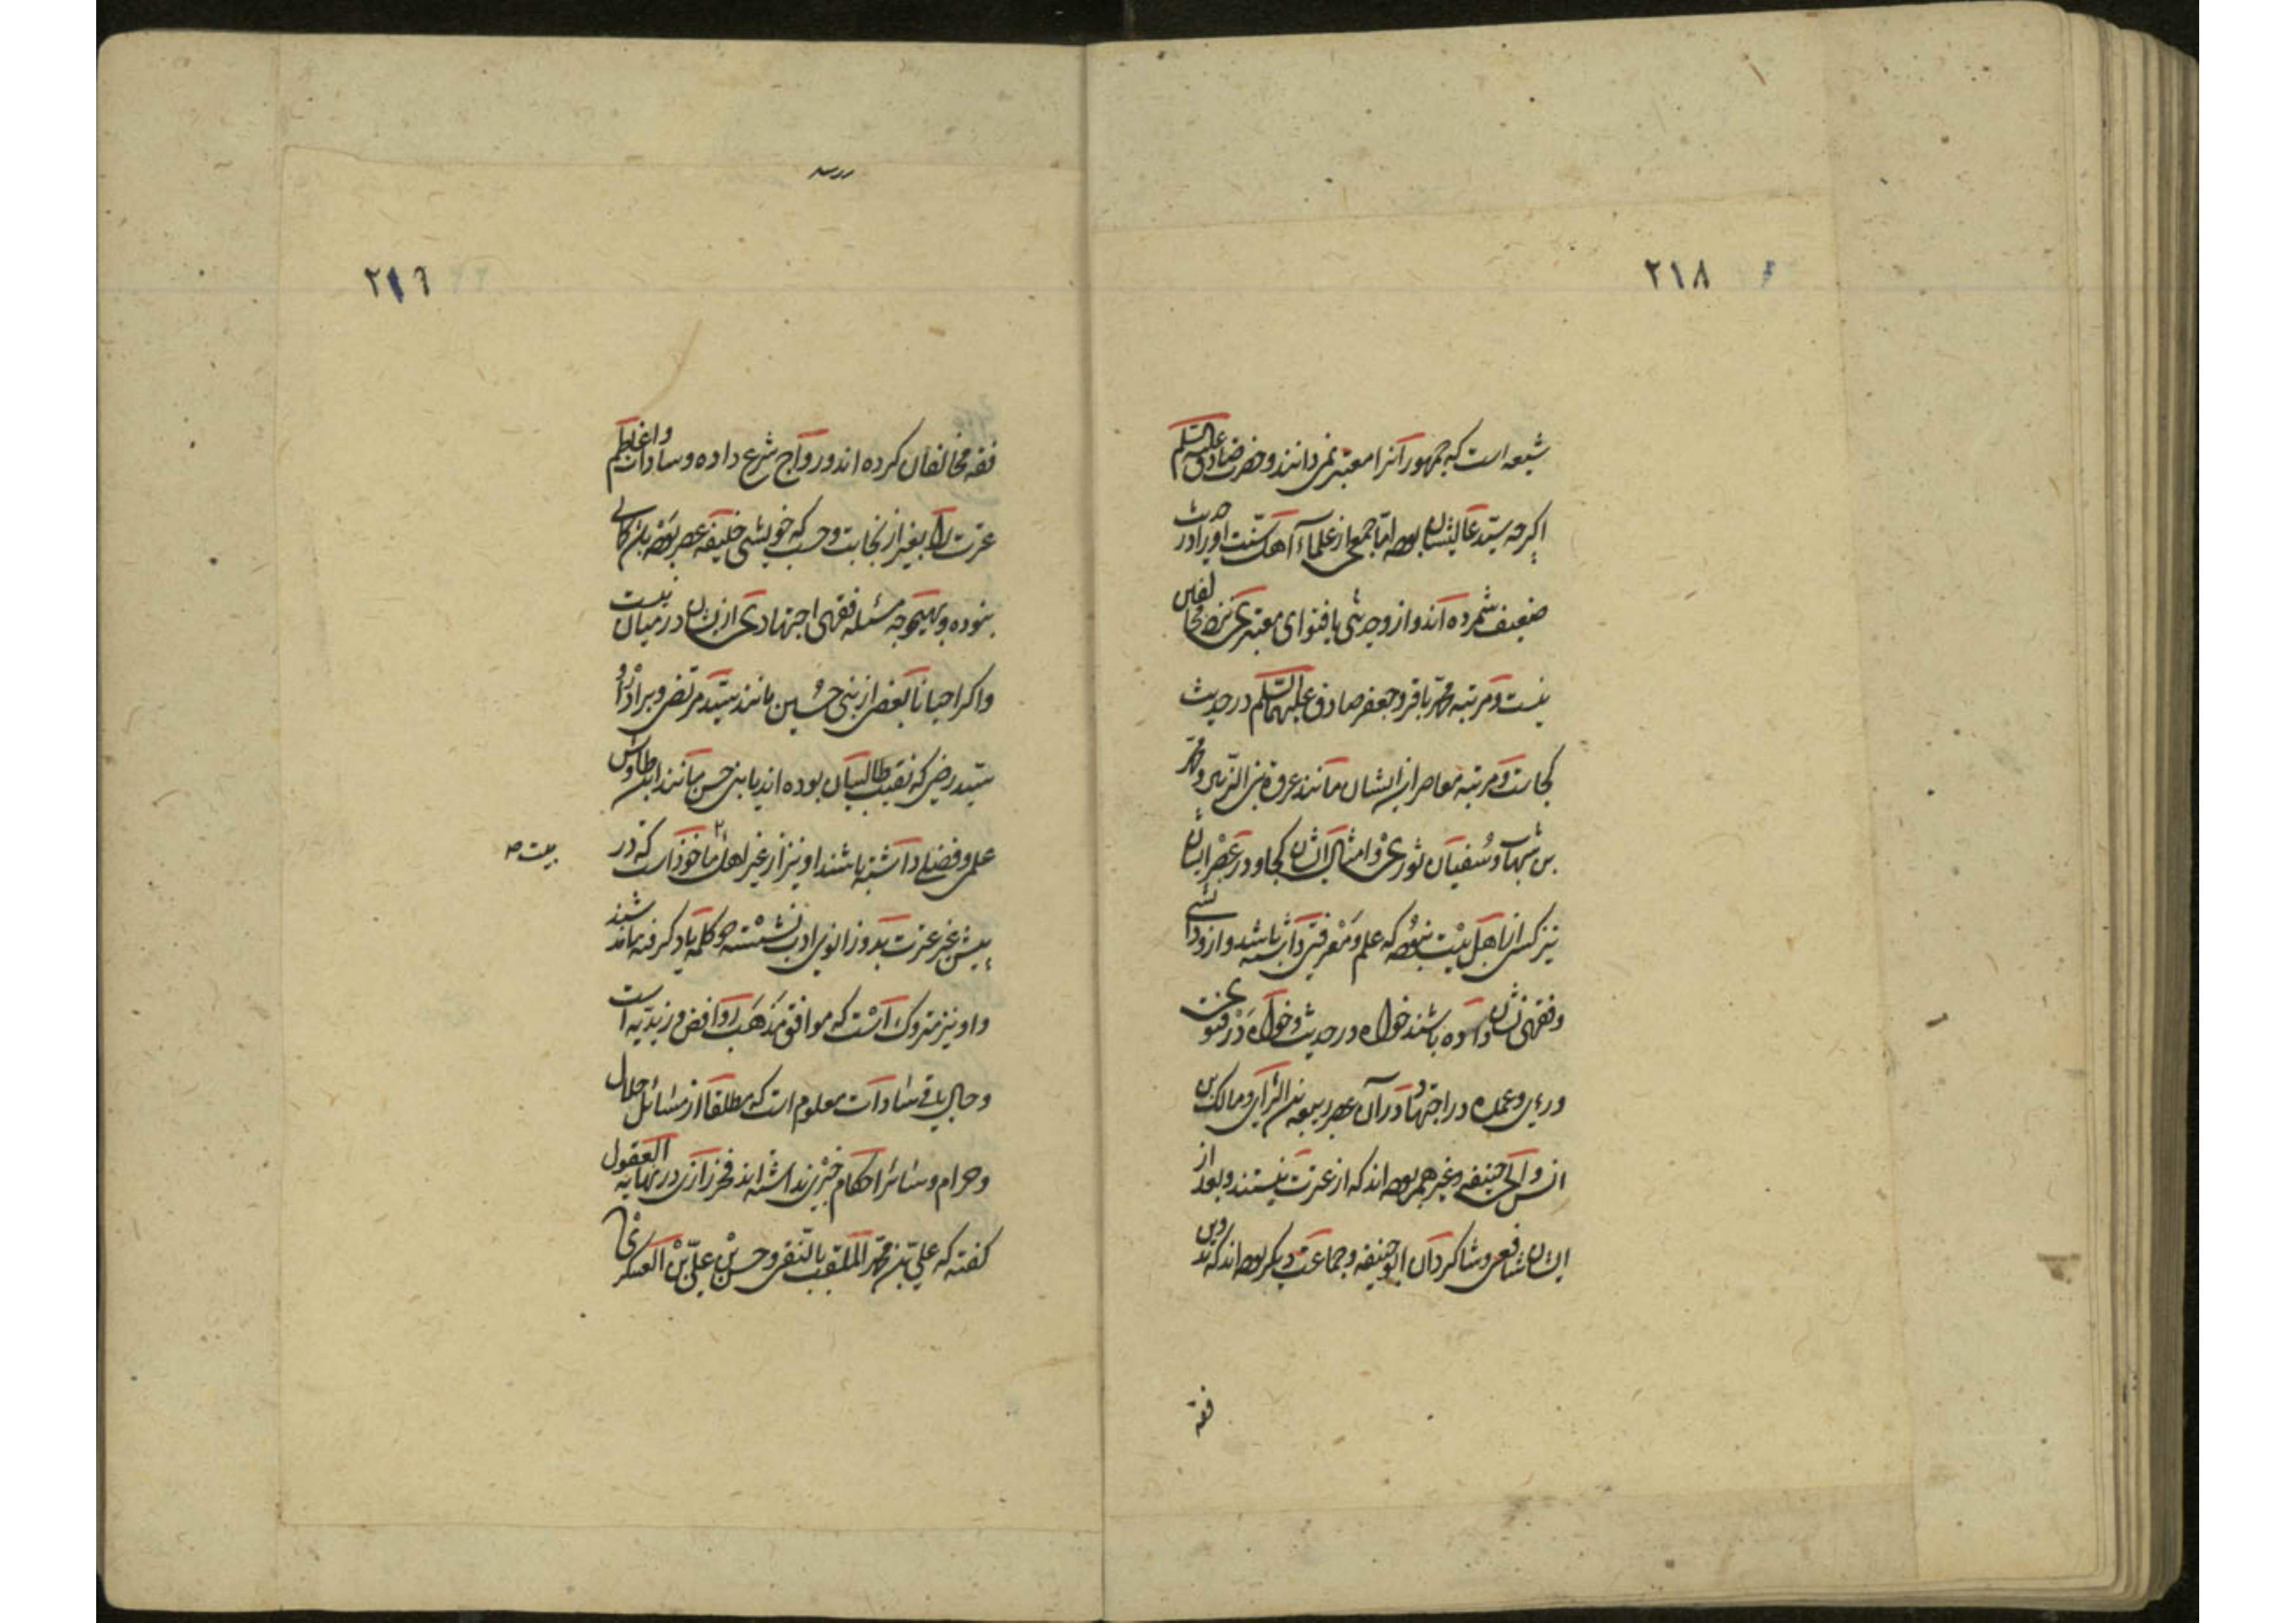 ٢١٨
شیعه است که جمهور آنرا معتبر نمی دانند و حضرت صادق علیه السلم
اکرچه سید عالیشان بوده اما جمعی از علماء اهل سنت او را در حدیث
ضعیف شمرده اند و از و حدیثی یا فتوای معتبری نزد مخالفان
نیست و مرتبه محمد باقر و جعفر صادق علیهما السلم در حدیث
کجاست و مرتبه معاصران ایشان مانند عروة بن الزبیر و محمد
بن شهاب و سفیان ثوری و امثال ایشان کجا و در عصر ایشان
نیز کسی از اهل بیت نبوده که علم و معرفتی داشته باشد و از و دانشی
و فقهی نشان داده باشند خواه در حدیث و خواه در فتوی
و رءی و عمده در اجتهاد در آن عصر ربیعه بن الرأی و مالک بن
انس و ابی حنیفه و غیرهم بوده اند که از عترت نیستند و بعد از
ایشان شافعی و شاکردان ابو حنیفه و جماعت دیکر بوده اند که تدوین
فقه
٢١٩
فقه مخالفان کرده اند و رواج شرع داده و سادات و اعاظم
عترت را بغیر از نجابت و حسب که خویشی خلیفه عصر بوده باشد کمالی
نبوده و بهیچوجه مسئله فقهی اجتهادی از یشان در میان نیست
و اکر احیانا بعضی از بنی حسین مانند سید مرتضی و برادر او
سید رضی که نقیب طالبیان بوده اند یا بنی حسن مانند ابن طاوس
علمی و فضلی داشته باشند او نیز از غیر اهل ماخوذ است که در
پیش غیر عترت بدو زانوی ادب نشسته دو کلمه یاد کرفته باشند
و او نیز متروک است که موافق مذهب روافض و زیدیه است
و حال باقی سادات معلوم است که مطلقا از مسائل حلال
و حرام و سائر احکام خبری نداشته اند فخر رازی در نهایه العقول
کفته که علی بن محمد الملقب بالنقی و حسن بن علی بن العسکری